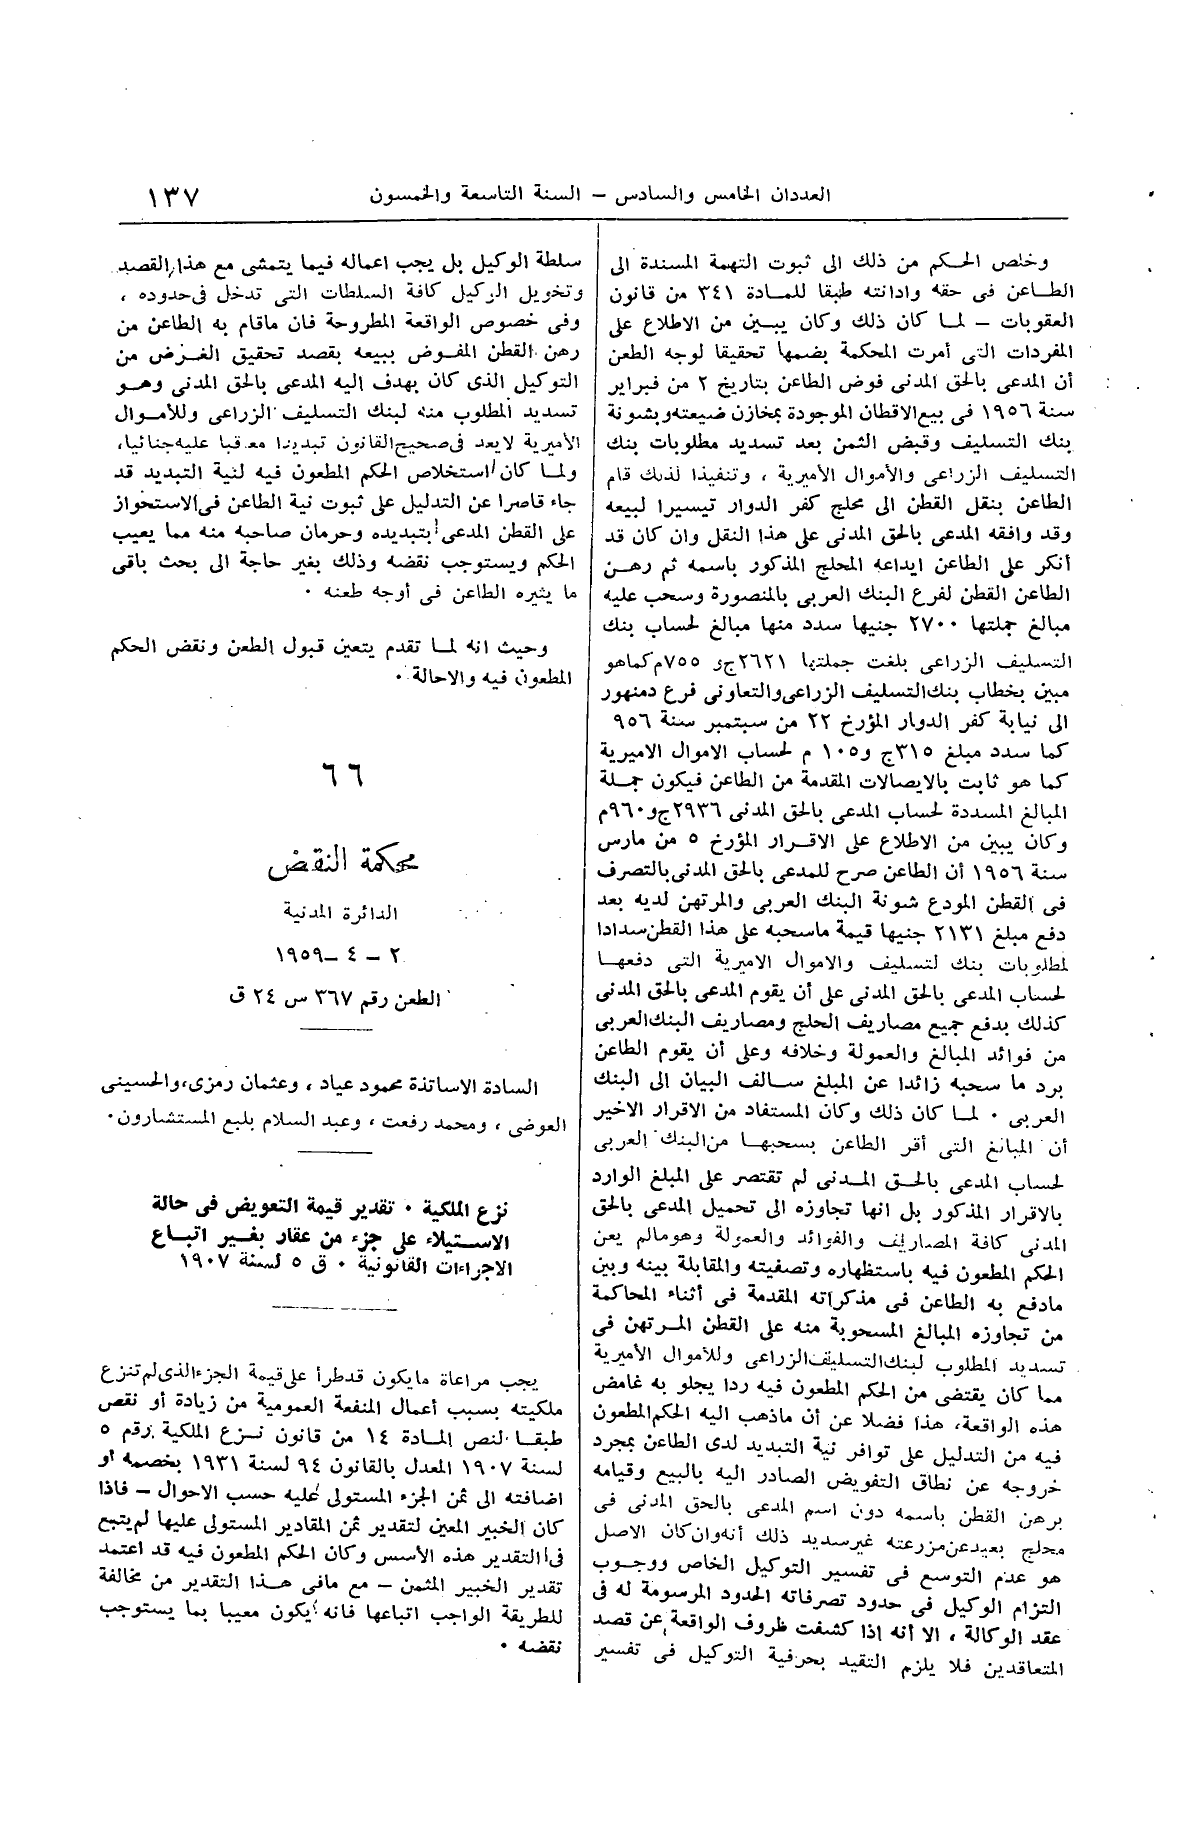 العددان الخامس والسادس – السنة التاسعة والخمسون
١٣٧
وخلص الحكم من ذلك الى ثبوت التهمة المسندة الى
الطاعن فى حقه وادانته طبقا للمادة ٣٤١ من قانون
العقوبات – لما كان ذلك وكان يبين من الاطلاع على
المفردات التى أمرت المحكمة بضمها تحقيقا لوجه الطعن
أن المدعى بالحق المدنى فوض الطاعن بتاريخ ٢ من فبراير
سنة ١٩٥٦ فى بيع الاقطان الموجودة بمخازن ضيعته وبشونة
بنك التسليف وقبض الثمن بعد تسديد مطلوبات بنك
التسليف الزراعى والأموال الأميرية ، وتنفيذا لذلك قام
الطاعن بنقل القطن الى محلج كفر الدوار تيسيرا لبيعه
وقد وافقه المدعى بالحق المدنى على هذا النقل وان كان قد
أنكر على الطاعن ايداعه المحلج المذكور باسمه ثم رهن
الطاعن القطن لفرع البنك العربى بالمنصورة وسحب عليه
مبالغ جملتها ٢٧٠٠ جنيها سدد منها مبالغ لحساب بنك
التسليف الزراعى بلغت جملتها ٢٦٢١ج و ٧٥٥م كما هو
مبين بخطاب بنك التسليف الزراعى والتعاونى فرع دمنهور
الى نيابة كفر الدوار المؤرخ ٢٢ من سبتمبر سنة ٩٥٦
كما سدد مبلغ ٣١٥ج و١٠٥ م لحساب الاموال الاميرية
كما هو ثابت بالايصالات المقدمة من الطاعن فيكون جملة
المبالغ المسددة لحساب المدعى بالحق المدنى ٢٩٣٦ج و٩٦٠م
وكان يبين من الاطلاع على الاقرار المؤرخ ٥ من مارس
سنة ١٩٥٦ أن الطاعن صرح للمدعى بالحق المدنى بالتصرف
فى القطن المودع شونة البنك العربى والمرتهن لديه بعد
دفع مبلغ ٢١٣١ جنيها قيمة ماسحبه على هذا القطن سدادا
لمطلوبات بنك لتسليف والاموال الاميرية التى دفعها
لحساب المدعى بالحق المدنى على أن يقوم المدعى بالحق المدنى
كذلك بدفع جميع مصاريف الحلج ومصاريف البنك العربى
من فوائد المبالغ والعمولة وخلافه وعلى أن يقوم الطاعن
برد ما سحبه زائدا عن المبلغ سالف البيان الى البنك
العربى ٠ لما كان ذلك وكان المستفاد من الاقرار الاخير
أن المبالغ التى أقر الطاعن بسحبها من البنك العربى
لحساب المدعى بالحق المدنى لم تقتصر على المبلغ الوارد
بالاقرار المذكور بل انها تجاوزه الى تحميل المدعى بالحق
المدنى كافة المصاريف والفوائد والعمولة وهو مالم يعن
الحكم المطعون فيه باستظهاره وتصفيته والمقابلة بينه وبين
مادفع به الطاعن فى مذكراته المقدمة فى أثناء المحاكمة
من تجاوزه المبالغ المسحوبة منه على القطن المرتهن فى
تسديد المطلوب لبنك التسليف الزراعى وللأموال الأميرية
مما كان يقتضى من الحكم المطعون فيه ردا يجلو به غامض
هذه الواقعة، هذا فضلا عن أن ماذهب اليه الحكم المطعون
فيه من التدليل على توافر نية التبديد لدى الطاعن بمجرد
خروجه عن نطاق التفويض الصادر اليه بالبيع وقيامه
برهن القطن باسمه دون اسم المدعى بالحق المدنى فى
محلج بعيد عن مزرعته غير سديد ذلك أنه وان كان الاصل
هو عدم التوسع فى تفسير التوكيل الخاص ووجوب
التزام الوكيل فى حدود تصرفاته الحدود المرسومة له فى
عقد الوكالة ، الا أنه اذا كشفت ظروف الواقعة عن قصد
المتعاقدين فلا يلزم التقيد بحرفية التوكيل فى تفسير
سلطة الوكيل بل يجب اعماله فيما يتمشى مع هذا القصد
وتخويل الوكيل كافة السلطات التى تدخل فى حدوده ،
وفى خصوص الواقعة المطروحة فان ماقام به الطاعن من
رهن القطن المفوض ببيعه بقصد تحقيق الغرض من
التوكيل الذى كان يهدف اليه المدعى بالحق المدنى وهو
تسديد المطلوب منه لبنك التسليف الزراعى وللأموال
الأميرية لايعد فى صحيح القانون تبديدا معاقبا عليه جنائيا،
ولما كان استخلاص الحكم المطعون فيه لنية التبديد قد
جاء قاصرا عن التدليل على ثبوت نية الطاعن فى الاستحواز
على القطن المدعى بتبديده وحرمان صاحبه منه مما يعيب
الحكم ويستوجب نقضه وذلك بغير حاجة الى بحث باقى
ما يثيره الطاعن فى أوجه طعنه ٠
وحيث انه لما تقدم يتعين قبول الطعن ونقض الحكم
المطعون فيه والاحالة ٠
٦٦
محكمة النقض
الدائرة المدنية
٢ – ٤ – ١٩٥٩
الطعن رقم ٣٦٧ س ٢٤ ق
السادة الاساتذة محمود عياد ، وعثمان رمزى، والحسينى
العوضى ، ومحمد رفعت ، وعبد السلام بلبع المستشارون ٠
نزع الملكية ٠ تقدير قيمة التعويض فى حالة
الاستيلاء على جزء من عقار بغير اتباع
الاجراءات القانونية ٠ ق ٥ لسنة ١٩٠٧
يجب مراعاة مايكون قد طرأ على قيمة الجزء الذى لم تنزع
ملكيته بسبب أعمال المنفعة العمومية من زيادة أو نقص
طبقا لنص المادة ١٤ من قانون نزع الملكية رقم ٥
لسنة ١٩٠٧ المعدل بالقانون ٩٤ لسنة ١٩٣١ بخصمه أو
اضافته الى ثمن الجزء المستولى عليه حسب الاحوال – فاذا
كان الخبير المعين لتقدير ثمن المقادير المستولى عليها لم يتبع
فى التقدير هذه الأسس وكان الحكم المطعون فيه قد اعتمد
تقدير الخبير المثمن – مع مافى هذا التقدير من مخالفة
للطريقة الواجب اتباعها فانه يكون معيبا بما يستوجب
نقضه ٠